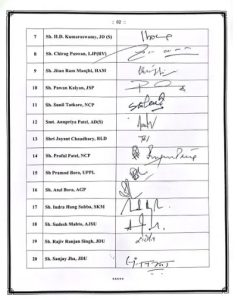 :: 02 ::
7 Sh. H.D. Kumaraswamy, JD (S)
8 Sh. Chirag Paswan, LJP(RV)
9 Sh. Jitan Ram Manjhi, HAM
10 Sh. Pawan Kalyan, JSP
11 Sh. Sunil Tatkare, NCP
12 Smt. Anupriya Patel, AD(S)
13 Shri Jayant Chaudhary, RLD
14 Sh. Praful Patel, NCP
15 Sh Pramod Boro, UPPL
16 Sh. Atul Bora, AGP
17 Sh. Indra Hang Subba, SKM
18 Sh. Sudesh Mahto, AJSU
19 Sh. Rajiv Ranjan Singh, JDU
20 Sh. Sanjay Jha, JDU
*****